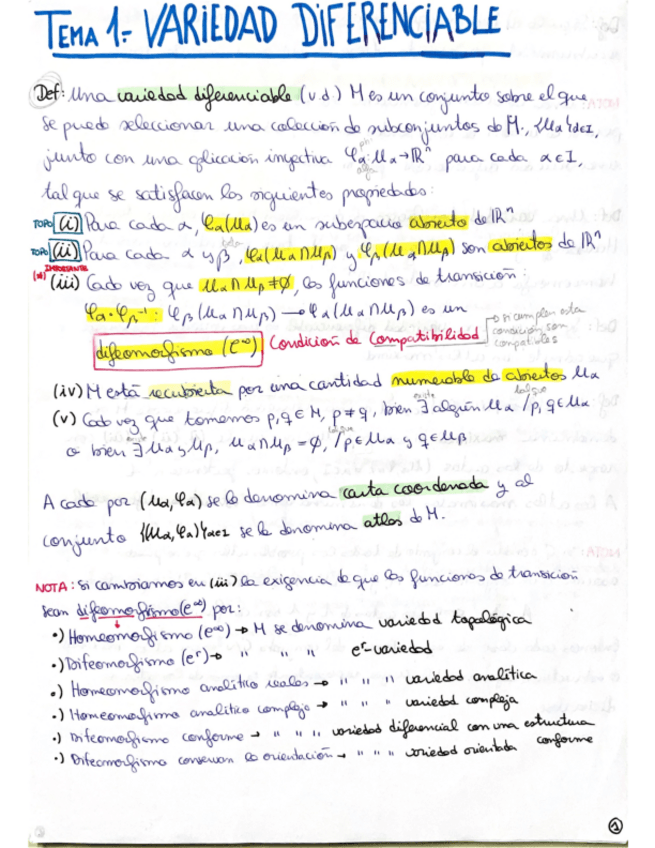 TEMA 1.- VARIEDAD DIFERENCIABLE
Def: Una variedad diferenciable (v.d.) M es un conjunto sobre el que
se puede seleccionar una colección de subconjuntos de M, {Uα}α∈I,
junto con una aplicación inyectiva φα: Uα → ℝⁿ para cada α∈I,
tal que se satisfacen las siguientes propiedades:
TOPO (i) Para cada α, φα(Uα) es un subespacio abierto de ℝⁿ
TOPO (ii) Para cada α y β, φα(Uα∩Uβ) y φβ(Uα∩Uβ) son abiertos de ℝⁿ
IMPORTANTE
(*) (iii) Cada vez que Uα∩Uβ≠∅, las funciones de transición:
φα∘φβ⁻¹: φβ(Uα∩Uβ) → φα(Uα∩Uβ) es un
difeomorfismo (C∞) Condición de Compatibilidad → si cumplen esta condición son compatibles
(iv) M está recubierta por una cantidad numerable de abiertos Uα
(v) Cada vez que tomemos p,q∈M, p≠q, bien ∃ algún Uα / p,q∈Uα
existe tal que
o bien ∃ Uα y Uβ, Uα∩Uβ=∅, / p∈Uα y q∈Uβ
A cada par (Uα, φα) se le denomina carta coordenada y al
conjunto {(Uα, φα)}α∈I se le denomina atlas de M.
NOTA: Si cambiamos en (iii) la exigencia de que las funciones de transición
sean difeomorfismo (C∞) por:
•) Homeomorfismo (C∞) → M se denomina variedad topológica
•) Difeomorfismo (Cʳ) → " " " Cʳ-variedad
•) Homeomorfismo analítico reales → " " " variedad analítica
•) Homeomorfismo analítico complejo → " " " variedad compleja
•) Difeomorfismo conforme → " " " variedad diferencial con una estructura conforme
•) Difeomorfismo conservan la orientación → " " " variedad orientada
1